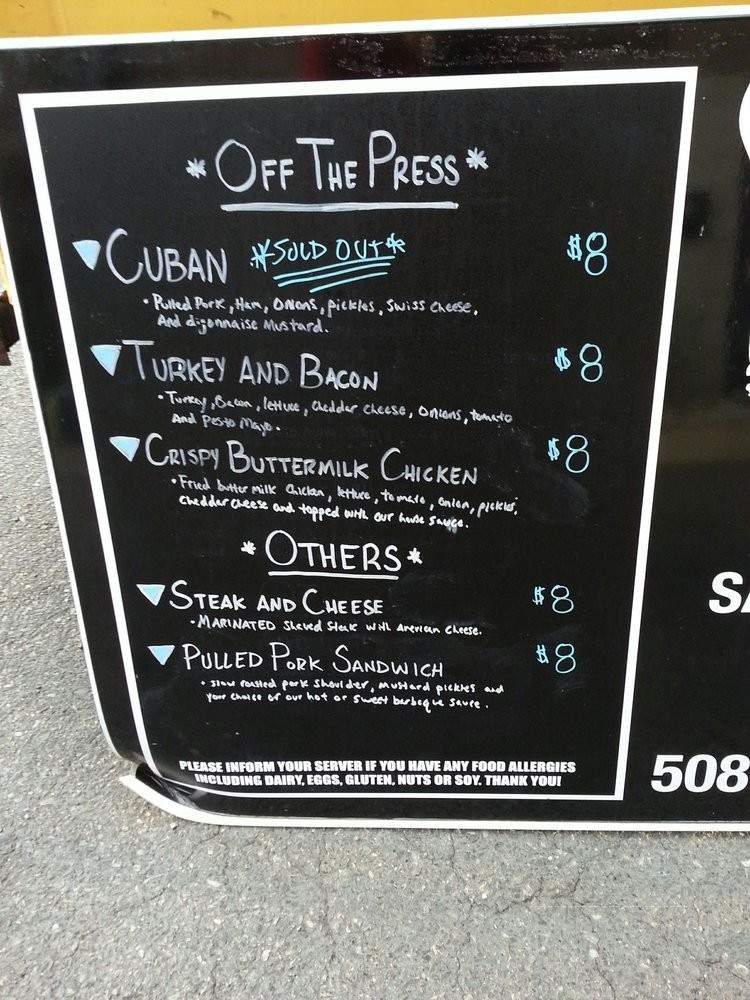 * OFF THE PRESS *
CUBAN *SOLD OUT* $8
• Pulled Pork, Ham, Onions, pickles, Swiss cheese,
And dijonnaise Mustard.
TURKEY AND BACON $8
• Turkey, Bacon, lettuce, cheddar cheese, Onions, tomato
And Pesto Mayo.
CRISPY BUTTERMILK CHICKEN $8
• Fried butter milk chicken, lettuce, tomato, onion, pickles,
Cheddar cheese and topped with our house sauce.
* OTHERS *
STEAK AND CHEESE $8
• MARINATED Shaved Steak with American cheese.
PULLED PORK SANDWICH $8
• slow roasted pork shoulder, mustard pickles and
your choice of our hot or sweet barbeque sauce.
PLEASE INFORM YOUR SERVER IF YOU HAVE ANY FOOD ALLERGIES
INCLUDING DAIRY, EGGS, GLUTEN, NUTS OR SOY. THANK YOU!
SA
508